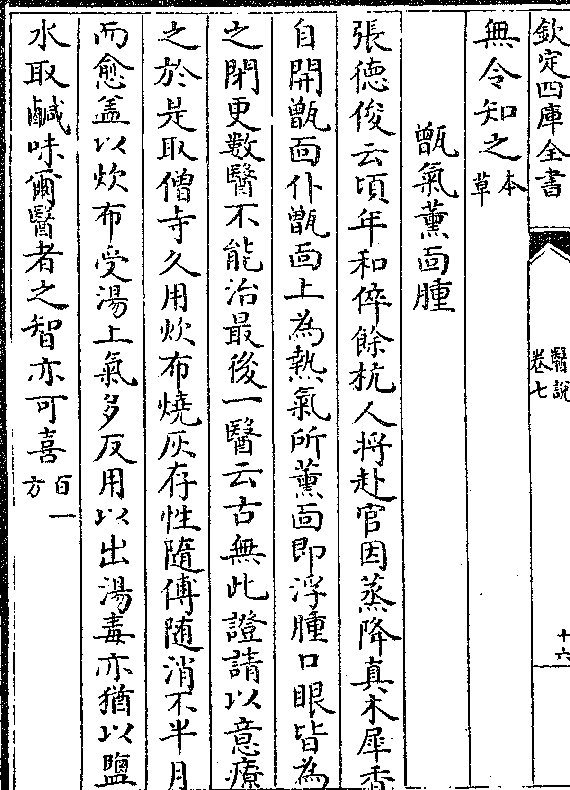 欽定四庫全書
醫說
卷七
十六
無令知之本草
甑氣薰面腫
張德俊云頃年和倅餘杭人將赴官因蒸降真木犀香
自開甑面仆甑面上為熱氣所薰面即浮腫口眼皆為
之閉更數醫不能治最後一醫云古無此證請以意療
之於是取僧寺久用炊布燒灰存性隨傅随消不半月
而愈盖以炊布受湯上氣多反用以出湯毒亦猶以鹽
水取鹹味爾醫者之智亦可喜百一方